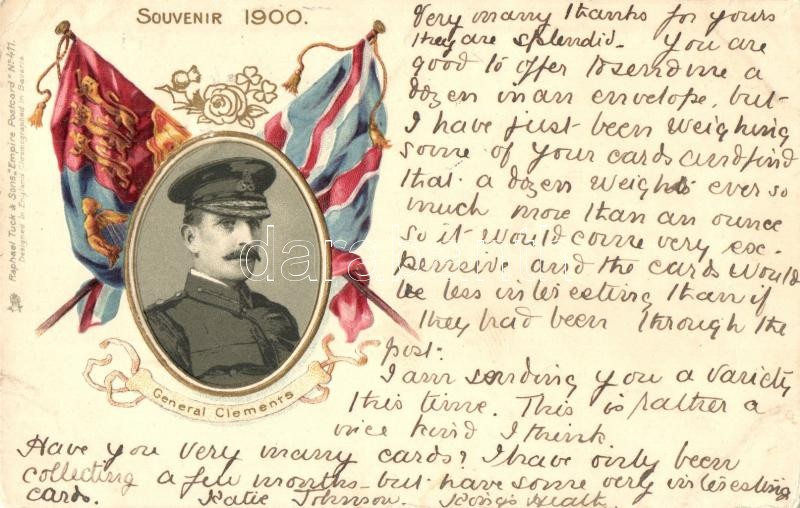 SOUVENIR 1900.
Raphael Tuck & Sons' "Empire Postcard" No 411.
Designed in England Chromographed in Bavaria
General Clements
darabanth
Very many thanks for yours
they are splendid. You are
good to offer to send me a
dozen in an envelope, but
I have just been weighing
some of your cards and find
that a dozen weighs ever so
much more than an ounce
so it would come very ex-
pensive and the cards would
be less interesting than if
they had been through the
post.
I am sending you a variety
this time. This is rather a
nice kind I think.
Have you very many cards? I have only been
collecting a few months - but have some very interesting
cards. Katie Johnson. King's Heath.